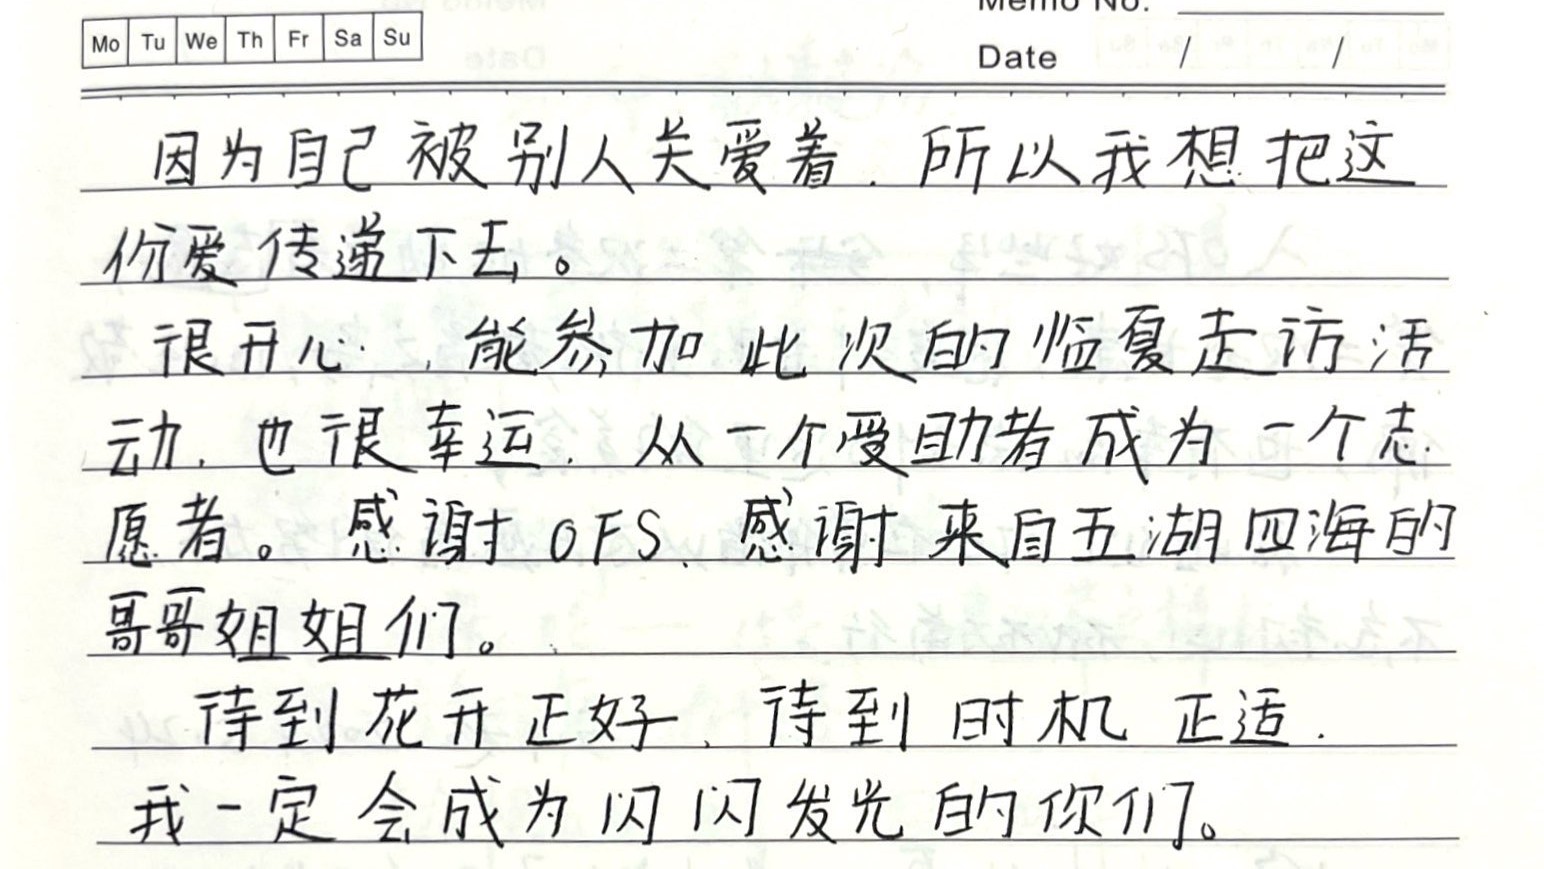 Memo No.
Mo Tu We Th Fr Sa Su
Date / /
因为自己被别人关爱着．所以我想把这
份爱传递下去。
很开心，能参加此次的临夏走访活
动．也很幸运．从一个受助者成为一个志
愿者。感谢OFS、感谢来自五湖四海的
哥哥姐姐们。
待到花开正好．待到时机正适．
我一定会成为闪闪发光的你们。